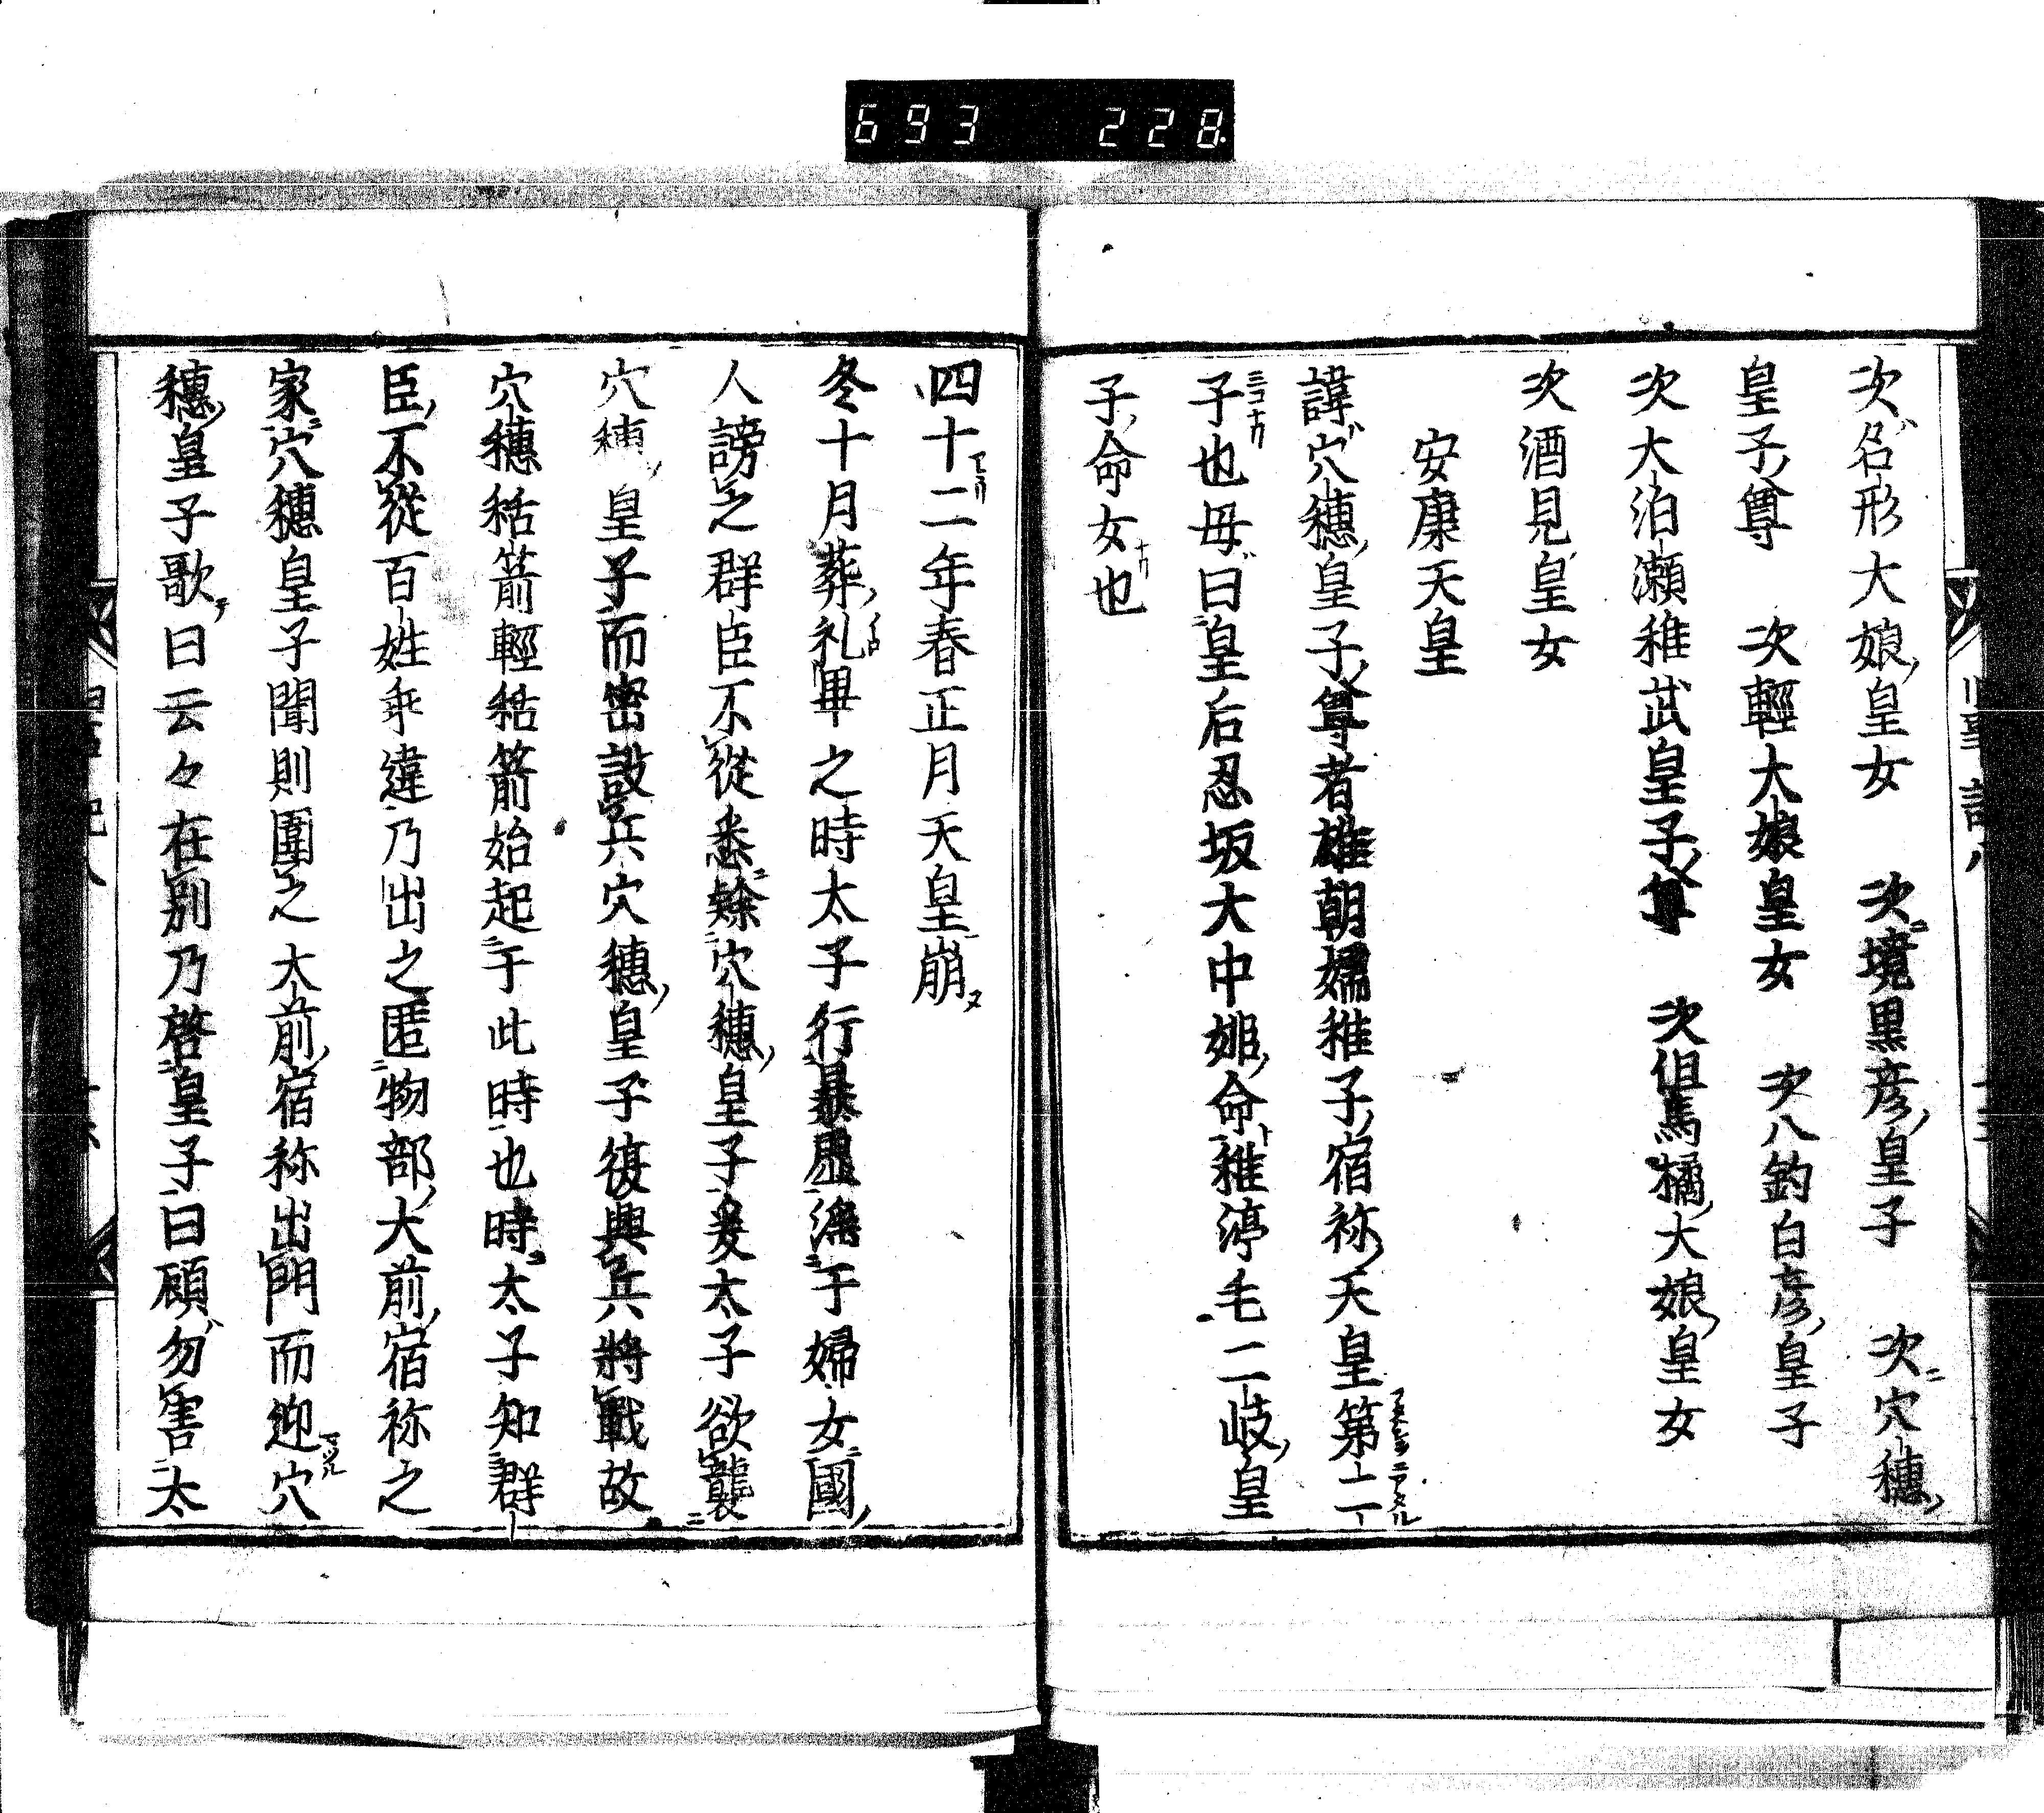 693 228
次名形大娘皇女 次境黒彦皇子 次穴穗
皇子尊 次輕大娘皇女 次八釣白彦皇子
次大泊瀬稚武皇子尊 次但馬橘大娘皇女
次酒見皇女
安康天皇
諱穴穗皇子尊者雄朝嬬稚子宿祢天皇第二
子也毋曰皇后忍坂大中姫命稚渟毛二岐皇
子命女也
四十二年春正月天皇崩
冬十月葬礼畢之時太子行暴虐滛于婦女國
人謗之群臣不從悉𨽻穴穗皇子爰太子欲襲
穴穗皇子而密設兵穴穗皇子復興兵將戰故
穴穗括箭輕括箭始起于此時也時太子知群
臣不從百姓乖違乃出之匿物部大前宿祢之
家穴穗皇子聞則圍之大前宿祢出門而迎穴
穗皇子歌曰云々在別乃啓皇子曰願勿害太